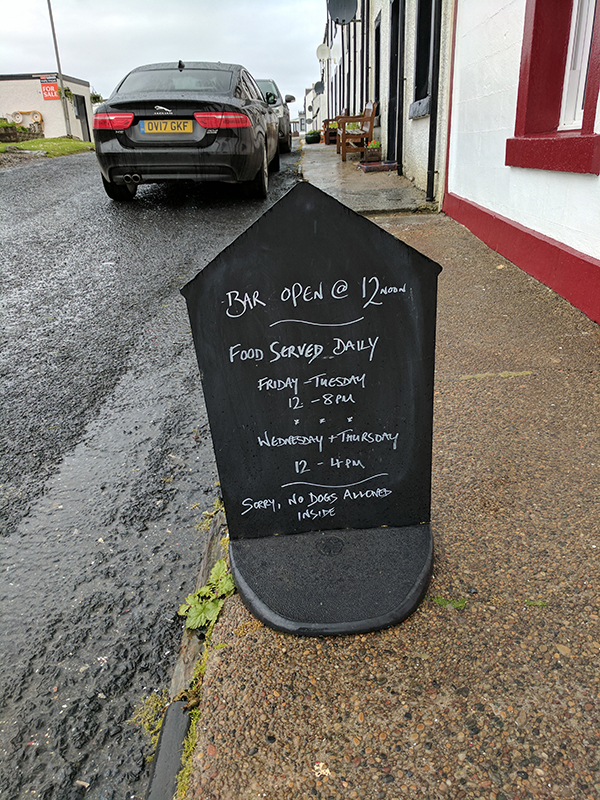 FOR
SALE
OV17 GKF
BAR OPEN @ 12 NOON
FOOD SERVED DAILY
FRIDAY - TUESDAY
12 - 8PM
* * *
WEDNESDAY + THURSDAY
12 - 4PM
SORRY, NO DOGS ALLOWED
INSIDE